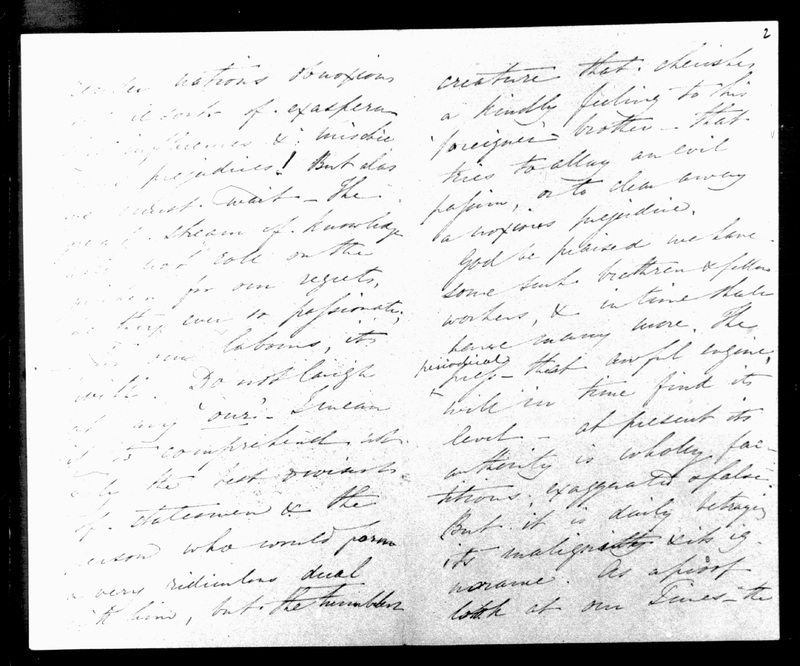 nations obnoxious
of exaspera
influences & mischie
prejudices! But alas
we must wait - The
great stream of knowledge
will not roll on the
for our regrets,
be they ever so passionate,
our labours, its
Do not laugh
at my "our" - I mean
it to comprehend not
only the best
of statesmen & the
person who would form
a very ridiculous dual
with him, but the humblest
2
creature that cherishes
a kindly feeling to his
foreigner brother - that
tries to allay an evil
passion, or to clear away
a noxious prejudice.
God be praised we have
some such brethren & fellow
workers, & in time shall
have many more. The
periodical
press - that awful engine,
will in time find its
level - at present its
authority is wholly fac-
titious, exaggerated & false.
But it is daily betraying
its malignity & its ig-
norance. As a proof
look at our Times - the